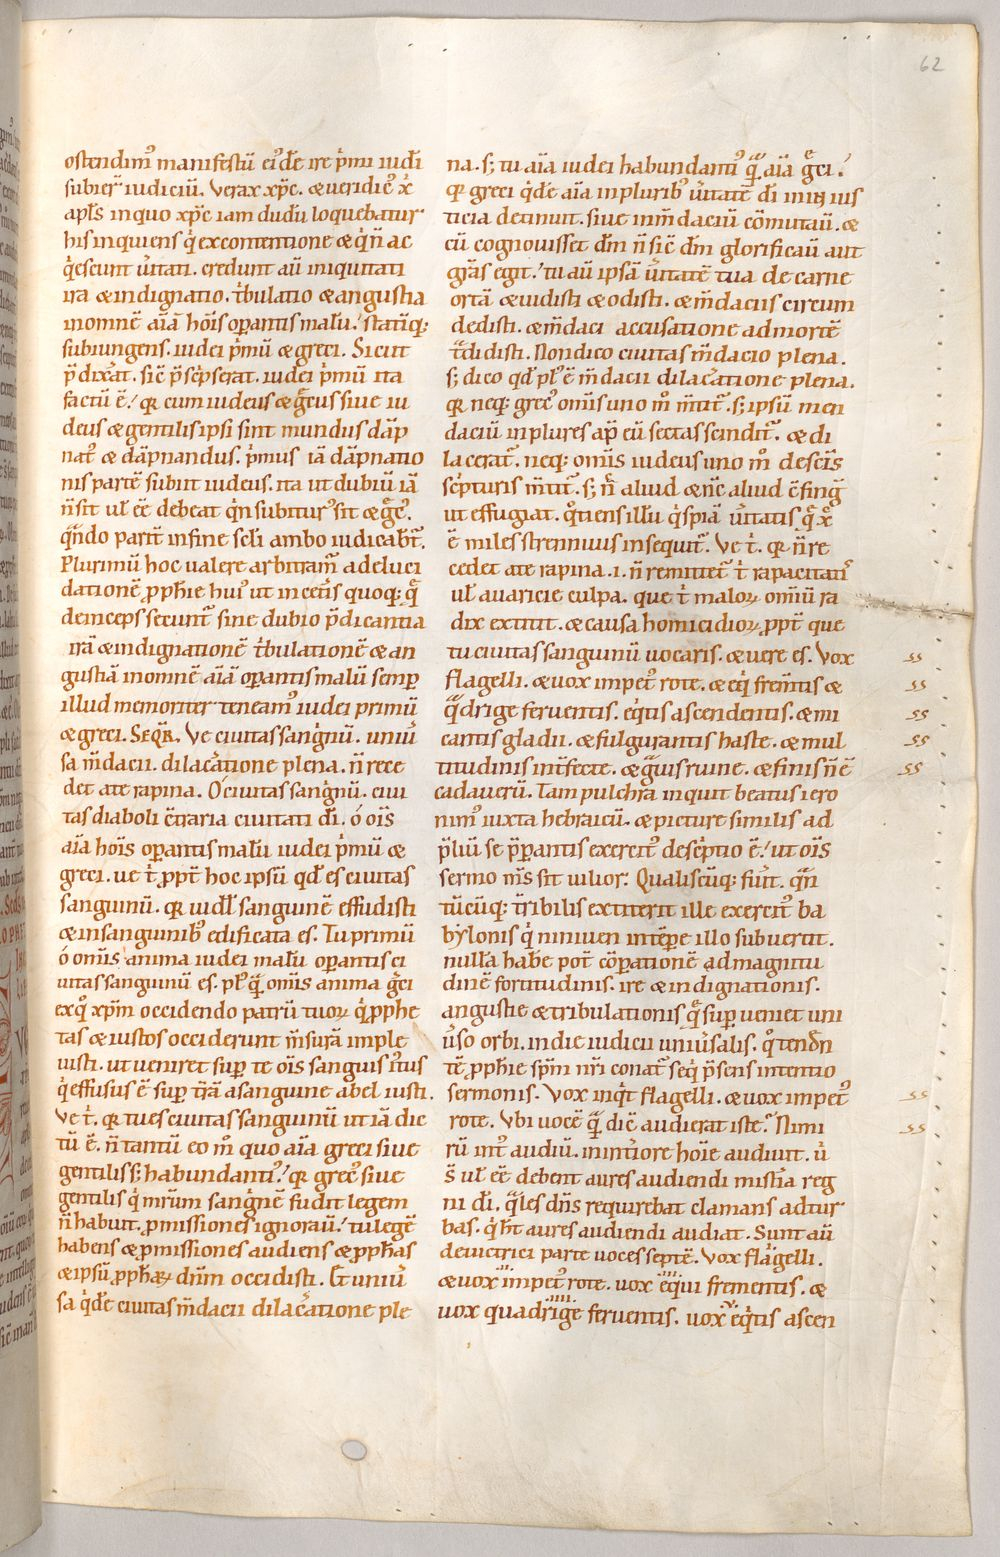 62
ostendim᷒ manifestū ei᷒dē ire p̓mi iudi̅
subier̄ iudiciū. Verax xp̄c. & ueridic᷒ x̓
apl̄s in quo xp̄c iam dudū loquebatur
his inquiens q̓ ex contentione & q̓ n̄ ac
q̓escunt ūitati. credunt aū iniquitati
ira & indignatio. t̓bulatio & angustia
in omnē aīā hoīs op̄antis malū. statīq;
subiungens. iudei p̓mū & greci. Sicut
p̄dixāt. sic̄ p̄sc̓pserat. iudei p̓mū ita
factū ē. qr cum iudeus & grecus siue iu
deus & gentilis ipsi sint mundus dāp
nat᷒ & dāpnandus. p̓mus iā dāpnatio
nis partē subiit iudeus. ita ut dubiū iā
n̄ sit ul̄ eē debeat q̓n subitur᷒ sit & grec᷒.
qn̄do parit̄ in fine scl̄i ambo iudicabt̄.
Plurimū hoc ualere arbitram̄ ad eluci
dationē p̱phīe hui᷒ ut in cet̓is quoq; q̄
deinceps secunt̄ sine dubio p̄dicantia
irā & indignationē t̓bulationē & an
gustiā in omnē aīā op̱antis malū semp̱
illud memoriter teneam᷒ iudei primū
& greci. SEQR̄. Ve ciuitas sanguinū. uniu̓
sa m̄dacii. dilac̓atione plena. n̄ rece
det a te rapina. O ciuitas sanguinū. ciui
tas diaboli c̄traria ciuitati dī. ó oīs
aīa hoīs op̱antis malū iudei p̓mū &
greci. ue t̓ p̱pt̄ hoc ipsū qd̄ es ciuitas
sanguinū. qr uidel̄ sanguinē effudisti
& in sanguinib᷒ edificata es. Tu primū
ó omīs anima iudei malū op̱antis ci
uitas sanguinū es. pl᷒ q̄ omīs anima greci
ex q̊ xp̄m occidendo patrū tuoꝝ q̓ p̱phe
tas & iustos occiderunt m̄surā imple
uisti. ut ueniret sup̱ te oīs sanguis iust᷒
q̓ effusus ē sup̱ t̄rā a sanguine abel iusti.
Ve t̓. qr tu es ciuitas sanguinū ut iā dic
tū ē. n̄ tantū eo m̊ quo aīa greci siue
gentilis s; habundanti᷒. qr grec᷒ siue
gentilis q̓ mr̄um sanguinē fudit legem
n̄ habuit. p̱missiones ignorauit. tu legē
habens & p̱missiones audiens & p̱phetas
& ipsū p̱phetaꝝ dn̄m occidisti. Et uniu̓
sa q̓dē ciuitas m̄dacii dilac̓atione ple
na. s; tu aīa iudei habundanti᷒ q̄ aīa greci.
qr greci q̓dē aīa in plurib᷒ ūitatē dī in inius
ticia detinuit. siue in m̄daciū cōmutauit. &
cū cognouisset dm̄ n̄ sic̄ dm̄ glorificauit aut
grās egit. tu aū ipsā ūitatē tua de carne
ortā & uidisti & odisti. & m̄daciis circum
dedisti. & m̄daci accusatione ad mortē
t̄didisti. Non dico ciuitas m̄dacio plena.
s; dico qd̄ pl᷒ ē m̄dacii dilac̓atione plena.
qr neq; grec᷒ omīs uno m̊ m̄tit̄. s; ipsū men
daciū in plures ap̄ eū sectas scindit̄. & di
lacerat̄. neq; omīs iudeus uno m̊ de sc̄is
sc̓pturis m̄tit̄. s; n̄c aliud & n̄c aliud c̄fingit
ut effugiat. q̊tiens illū q̓spiā ūitatis q̄ x̄
ē miles strennuus insequit̄. Ve t̓. qr n̄ re
cedet a te rapina .i. n̄ remittet̄ t̓ rapacitati᷒
ul̄ auaricie culpa. que t̓ maloꝝ omniū ra
dix extitit. & causa homicidioꝝ p̱pt̄ que
tu ciuitas sanguinū uocaris. & uere es. Vox
flagelli. & uox impet᷒ rote. & eq̓ frem̄tis &
q̄drige feruentis. eq̓tis ascendentis. & mi
cantis gladii. & fulgurantis haste. & mul
titudinis int̄fecte. & grauis ruine. & finis n̄ ē
cadauerū. Tam pulchra inquit beatus iero
nim᷒ iuxta hebraicū. & picture similis ad
p̄liū se p̄p̱antis exercit᷒ desc̓ptio ē. ut oīs
sermo m̄s sit uilior. Qualiscūq; fuit. q̄n
tūcūq; tr̄ribilis extiterit ille exercit᷒ ba
bylonis q̓ niniuen in temp̱e illo subuertit.
nullā habē pot̄ cōp̱ationē ad magnitu
dinē fortitudinis. ire & indignationis.
angustie & tribulationis q̄ sup̱ ueniet uni
ūso orbi. in die iudicii uniūsalis. q̊ tendn̄
tē p̱phīe spm̄ nr̄i conat̄ seq̓ p̄sens intentio
sermonis. Vox inq̓t flagelli. & uox impet᷒
rote. Ubi uocē q̄ dic̄ audierat iste. Nimi
rū int᷒ audiū. in int̓iore hoīe audiuit. ū
s̄ ul̄ eē debent aures audiendi misteria reg
ni dī. q̄les dn̄s requirebat clamans ad tur
bas. q̓ h̄t aures audiendi audiat. Sunt aū
de iuctrici parte uoces septē. Vox flagelli.
& uox impet᷒ rote. uox equi frementis. &
uox quadrige feruentis. uox eq̓tis ascen
ss
ss
ss
ss
ss
ss
ss